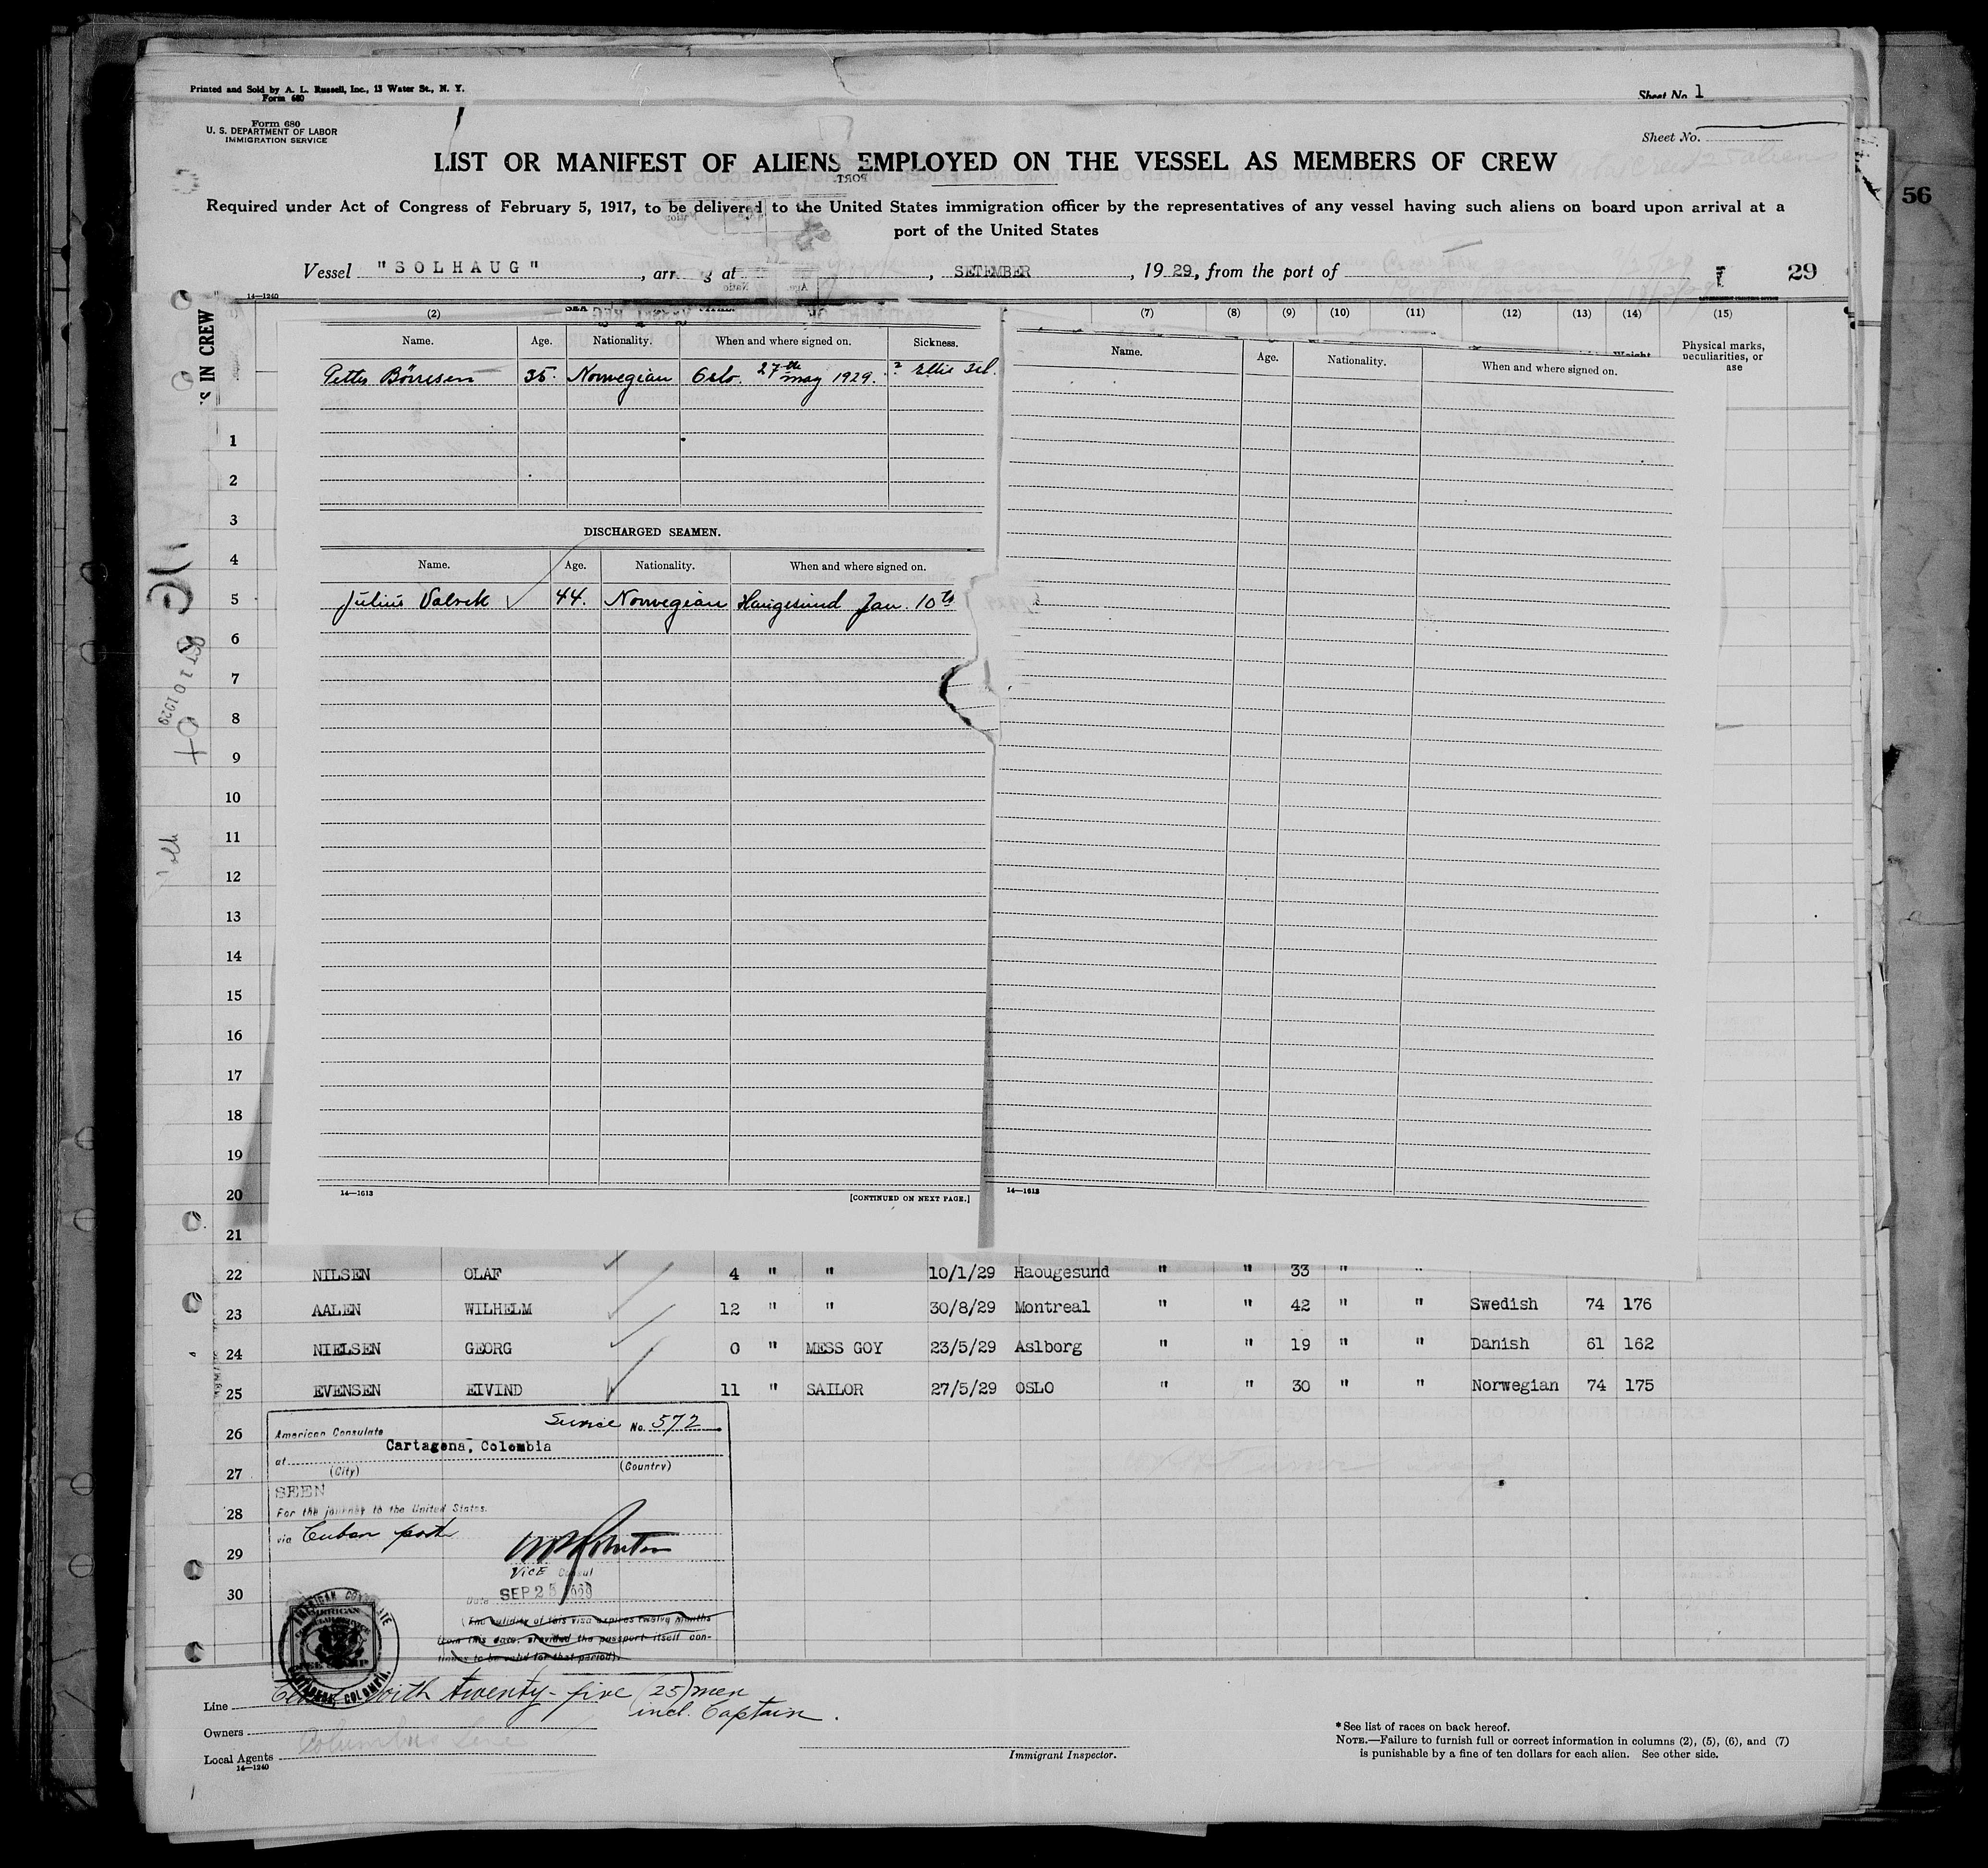 Printed and Sold by A. L. Russell, Inc., 13 Water St., N. Y.
Form 680
Sheet No. 1
Form 680
U. S. DEPARTMENT OF LABOR
IMMIGRATION SERVICE
Sheet No.
LIST OR MANIFEST OF ALIENS EMPLOYED ON THE VESSEL AS MEMBERS OF CREW
56
Required under Act of Congress of February 5, 1917, to be delivered to the United States immigration officer by the representatives of any vessel having such aliens on board upon arrival at a
port of the United States
Vessel "SOLHAUG", arr g at , SETEMBER, 1929, from the port of
29
14—1240
(2) (7) (8) (9) (10) (11) (12) (13) (14) (15)
'S IN CREW
Name. Age. Nationality. When and where signed on. Sickness.
Name. Age. Nationality. When and where signed on.
Weight
Physical marks,
peculiarities, or
ase
Petter Börresen 35. Norwegian Oslo. 27th may 1929. Ellis Isl.
1
2
3
DISCHARGED SEAMEN.
4
Name. Age. Nationality. When and where signed on.
5
Julius Valvek 44. Norwegian Haugesund Jan. 10th
6
7
8
OCT 10 1929
9
10
11
12
13
14
15
16
17
18
19
20
14—1613 [CONTINUED ON NEXT PAGE.] 14—1613
21
22 NILSEN OLAF 4 " " 10/1/29 Haougesund " " 33 " "
23 AALEN WILHELM 12 " " 30/8/29 Montreal " " 42 " " Swedish 74 176
24 NIELSEN GEORG 0 " MESS GOY 23/5/29 Aslborg " " 19 " " Danish 61 162
25 EVENSEN EIVIND 11 " SAILOR 27/5/29 OSLO " " 30 " " Norwegian 74 175
26
27
28
29
30
Service No. 572
American Consulate
at Cartagena, Colombia
(City) (Country)
SEEN
For the journey to the United States.
via Cuban port
Vice Consul
Date SEP 25 1929
(The validity of this visa expires twelve months
from this date, provided the passport itself con-
tinues to be valid for that period).
AMERICAN CONSULATE
CARTAGENA, COLOMBIA.
with twenty-five (25) men
incl. Captain.
Line
Owners
Columbus Line
Local Agents
14—1240
Immigrant Inspector.
*See list of races on back hereof.
NOTE.—Failure to furnish full or correct information in columns (2), (5), (6), and (7)
is punishable by a fine of ten dollars for each alien. See other side.